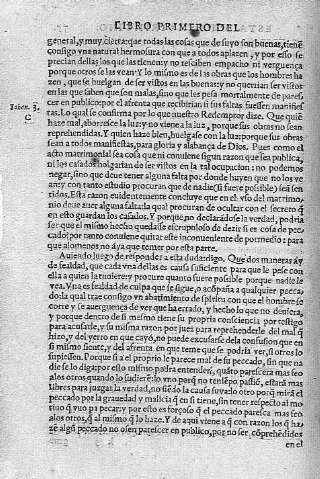 LIBRO PRIMERO DEL
general, y muy cierta: que todas las cosas que de suyo son buenas, tienē
consigo vna natural hermosura con que a todos aplazen, y por esso se
precian dellas los que las tienen: y no resciben empacho ni verguença
porque otros se las vean: Y lo mismo es de las obras que los hombres ha
zen, que se huelgan de ser vistos en las buenas: y no querrian ser vistos
en las que saben que son malas, sino que les pesa mortalmente de pares
cer en publico: por el afrenta que recibirian si sus faltas fuessen manifies
tas. Lo qual se confirma por lo que nuestro Redemptor dize. Que quiē
Ioan. 3.
haze mal, aborresce la luz: y no viene a la luz, porque sus obras no sean
C
reprehendidas. Y quien haze bien, huelgase con la luz: porque sus obras
sean a todos manifiestas, para gloria y alabança de Dios. Pues como el
acto matrimonial sea cosa que ni conuiene segun razon que sea publica,
ni los casados holgarian de ser vistos en la tal ocupacion: no podemos
negar, sino que deue tener alguna falta por donde huyen que no los ve
an: y con tanto estudio procuran que de nadie (si fuere possible) sea sen
tidos. Esta razon euidentemente concluye que en el vso del matrimo
nio deue auer alguna falta: la qual procuran de ocultar con el secreto q̄
en esto guardan los casados. Y porque no declarādose la verdad, podria
ser que el mismo hecho quedasse escrupuloso de dezir si es cosa de pec
cado: por tanto conuiene quitar este inconueniente de por medio: para
que alomenos no aya que temer por esta parte.
Auiendo luego de responder a esta duda: digo. Que dos maneras ay
de fealdad, que cada vna dellas es causa sufficiente para que le pese con
ella a quien la tuuiere: y procure quanto fuere possible porque nadie le
vea. Vna es fealdad de culpa que se sigue, o acompaña a qualquier pecca
do: la qual trae consigo vn abatimiento de spiritu con que el hombre se
corre y se auerguença de ver que ha errado, y hecho lo que no deuiera,
y porque dentro de si mismo tiene su propria consciencia por testigo
para acusarle, y su misma razon por juez para reprehenderle del mal q̄
hizo, y del yerro en que cayó, no puede excusarse de la confusion que en
si mismo siente, y del afrenta en que teme que se podria ver, si otros lo
supiessen. Porque si a el proprio le paresce mal de su peccado, sin que na
die se lo diga: por esto mismo podra entender, quāto parescera mas feo
alos otros quando lo supieren: lo vno porq̄ no teniēdo passiō, estarā mas
libres para juzgar la verdad, no siēdo la causa suya: lo otro porq̄ mirā el
peccado por la grauedad y malicia q̄ en si tiene, sin tener respecto al mo
tiuo q̄ vuo pa pecar: y por esto es forçoso q̄ el peccado paresca mas feo
alos otros, q̄ al mismo q̄ lo haze. Y de aqui viene a q̄ con razon los q̄ ha
zē algū peccado no osen parescer en publico, por no ser cōprehēdidos
en el